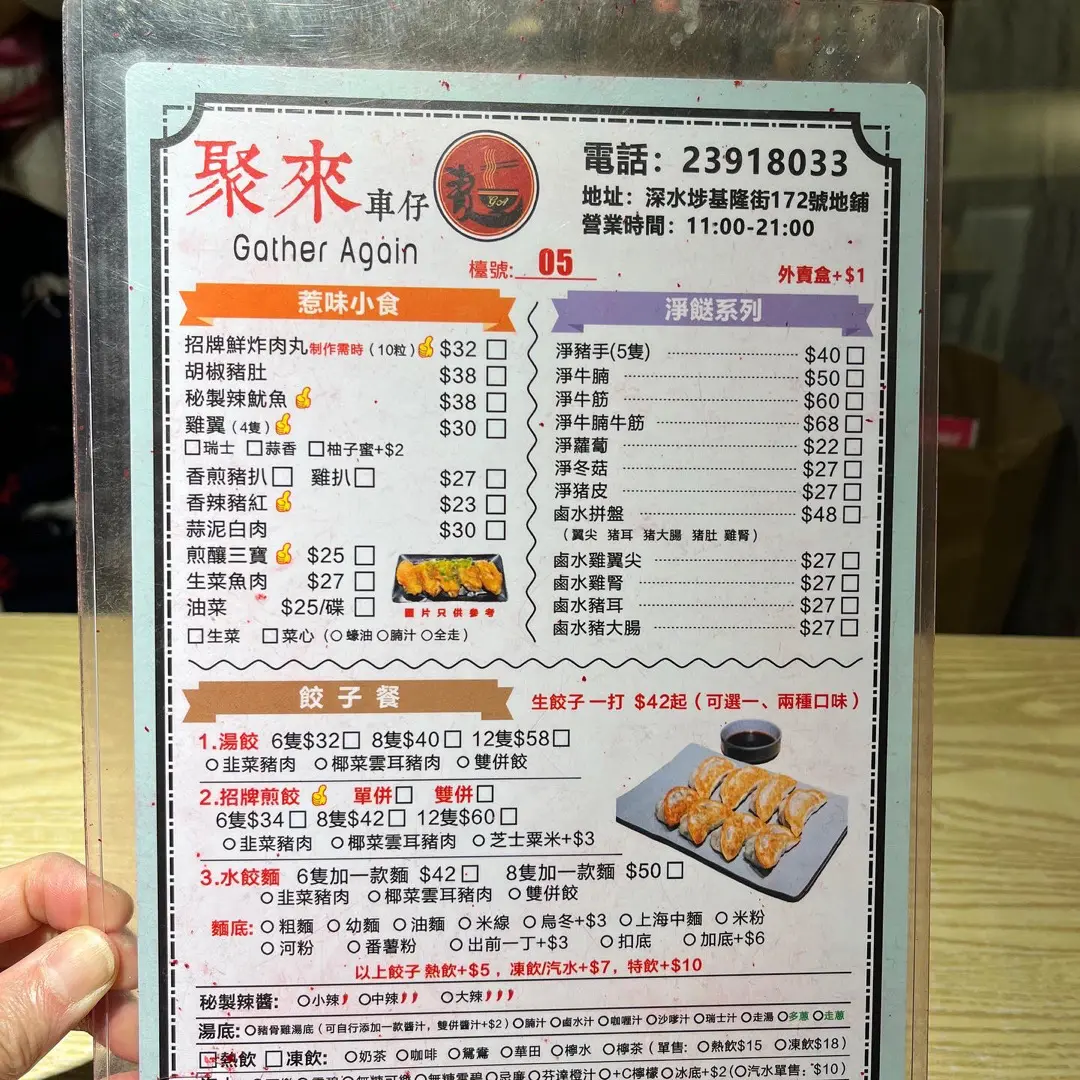 聚來 車仔麵 GA
Gather Again
電話：23918033
地址：深水埗基隆街172號地鋪
營業時間：11:00-21:00
檯號: 05
外賣盒+$1
惹味小食
招牌鮮炸肉丸制作需時（10粒）👍 $32 □
胡椒豬肚 $38 □
秘製辣魷魚 👍 $38 □
雞翼（4隻）👍 $30 □
□瑞士 □蒜香 □柚子蜜+$2
香煎豬扒□ 雞扒□ $27 □
香辣豬紅 👍 $23 □
蒜泥白肉 $30 □
煎釀三寶 👍 $25 □
生菜魚肉 $27 □
油菜 $25/碟 □
□生菜 □菜心（○蠔油○腩汁○全走）
圖片只供參考
淨餸系列
淨豬手(5隻) $40 □
淨牛腩 $50 □
淨牛筋 $60 □
淨牛腩牛筋 $68 □
淨蘿蔔 $22 □
淨冬菇 $27 □
淨豬皮 $27 □
鹵水拼盤 $48 □
（翼尖 豬耳 豬大腸 豬肚 雞腎）
鹵水雞翼尖 $27 □
鹵水雞腎 $27 □
鹵水豬耳 $27 □
鹵水豬大腸 $27 □
餃子餐
生餃子一打 $42起（可選一、兩種口味）
1.湯餃 6隻$32□ 8隻$40□ 12隻$58□
○韭菜豬肉 ○椰菜雲耳豬肉 ○雙併餃
2.招牌煎餃 👍 單併□ 雙併□
6隻$34□ 8隻$42□ 12隻$60□
○韭菜豬肉 ○椰菜雲耳豬肉 ○芝士粟米+$3
3.水餃麵 6隻加一款麵 $42□ 8隻加一款麵 $50□
○韭菜豬肉 ○椰菜雲耳豬肉 ○雙併餃
麵底: ○粗麵 ○幼麵 ○油麵 ○米線 ○烏冬+$3 ○上海中麵 ○米粉
○河粉 ○番薯粉 ○出前一丁+$3 ○扣底 ○加底+$6
以上餃子 熱飲+$5，凍飲/汽水+$7，特飲+$10
秘製辣醬: ○小辣 ○中辣 ○大辣
湯底: ○豬骨雞湯底（可自行添加一款醬汁，雙併醬汁+$2）○腩汁 ○鹵水汁 ○咖喱汁 ○沙嗲汁 ○瑞士汁 ○走湯 ○多蔥 ○走蔥
□熱飲 □凍飲: ○奶茶 ○咖啡 ○鴛鴦 ○華田 ○檸水 ○檸茶（單售: ○熱飲$15 ○凍飲$18）
○無糖可樂 ○無糖雪碧 ○忌廉 ○芬達橙汁 ○+C檸檬 ○冰底+$2（○汽水單售: $10）